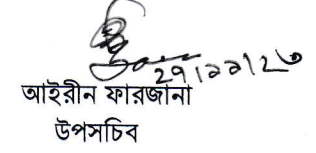 ২৭।১১।২৩
আইরীন ফারজানা
উপসচিব